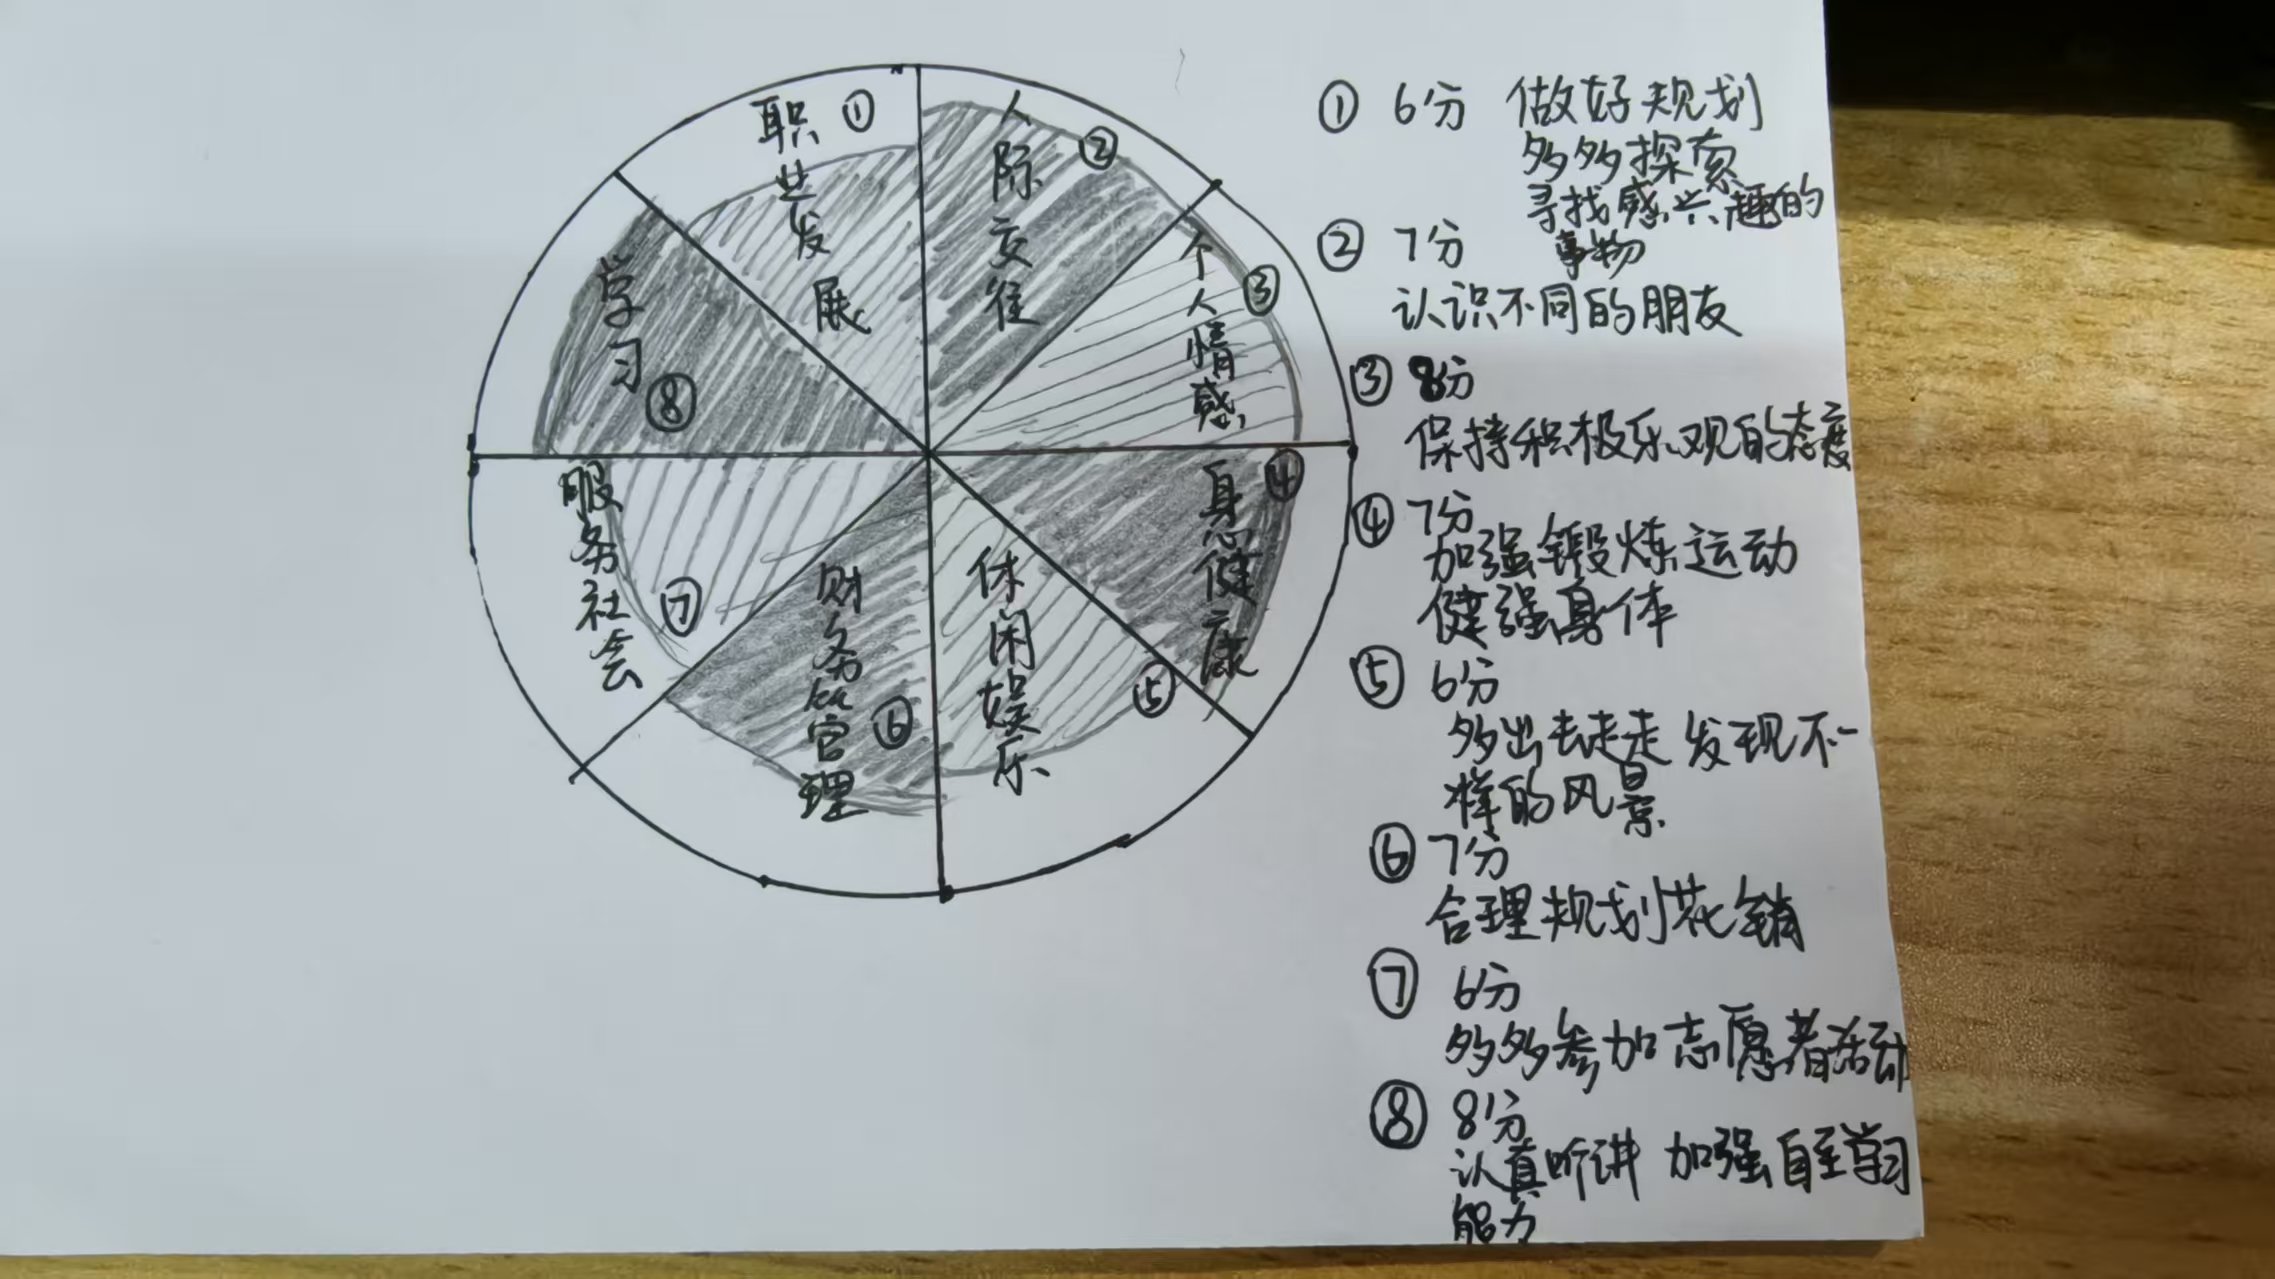 职业发展 ①
人际交往 ②
个人情感 ③
身心健康 ④
休闲娱乐 ⑤
财务管理 ⑥
服务社会 ⑦
学习 ⑧
① 6分 做好规划
多多探索
寻找感兴趣的
事物
② 7分
认识不同的朋友
③ 8分
保持积极乐观的态度
④ 7分
加强锻炼运动
健强身体
⑤ 6分
多出去走走 发现不一
样的风景
⑥ 7分
合理规划花销
⑦ 6分
多多参加志愿者活动
⑧ 8分
认真听讲 加强自主学习
能力